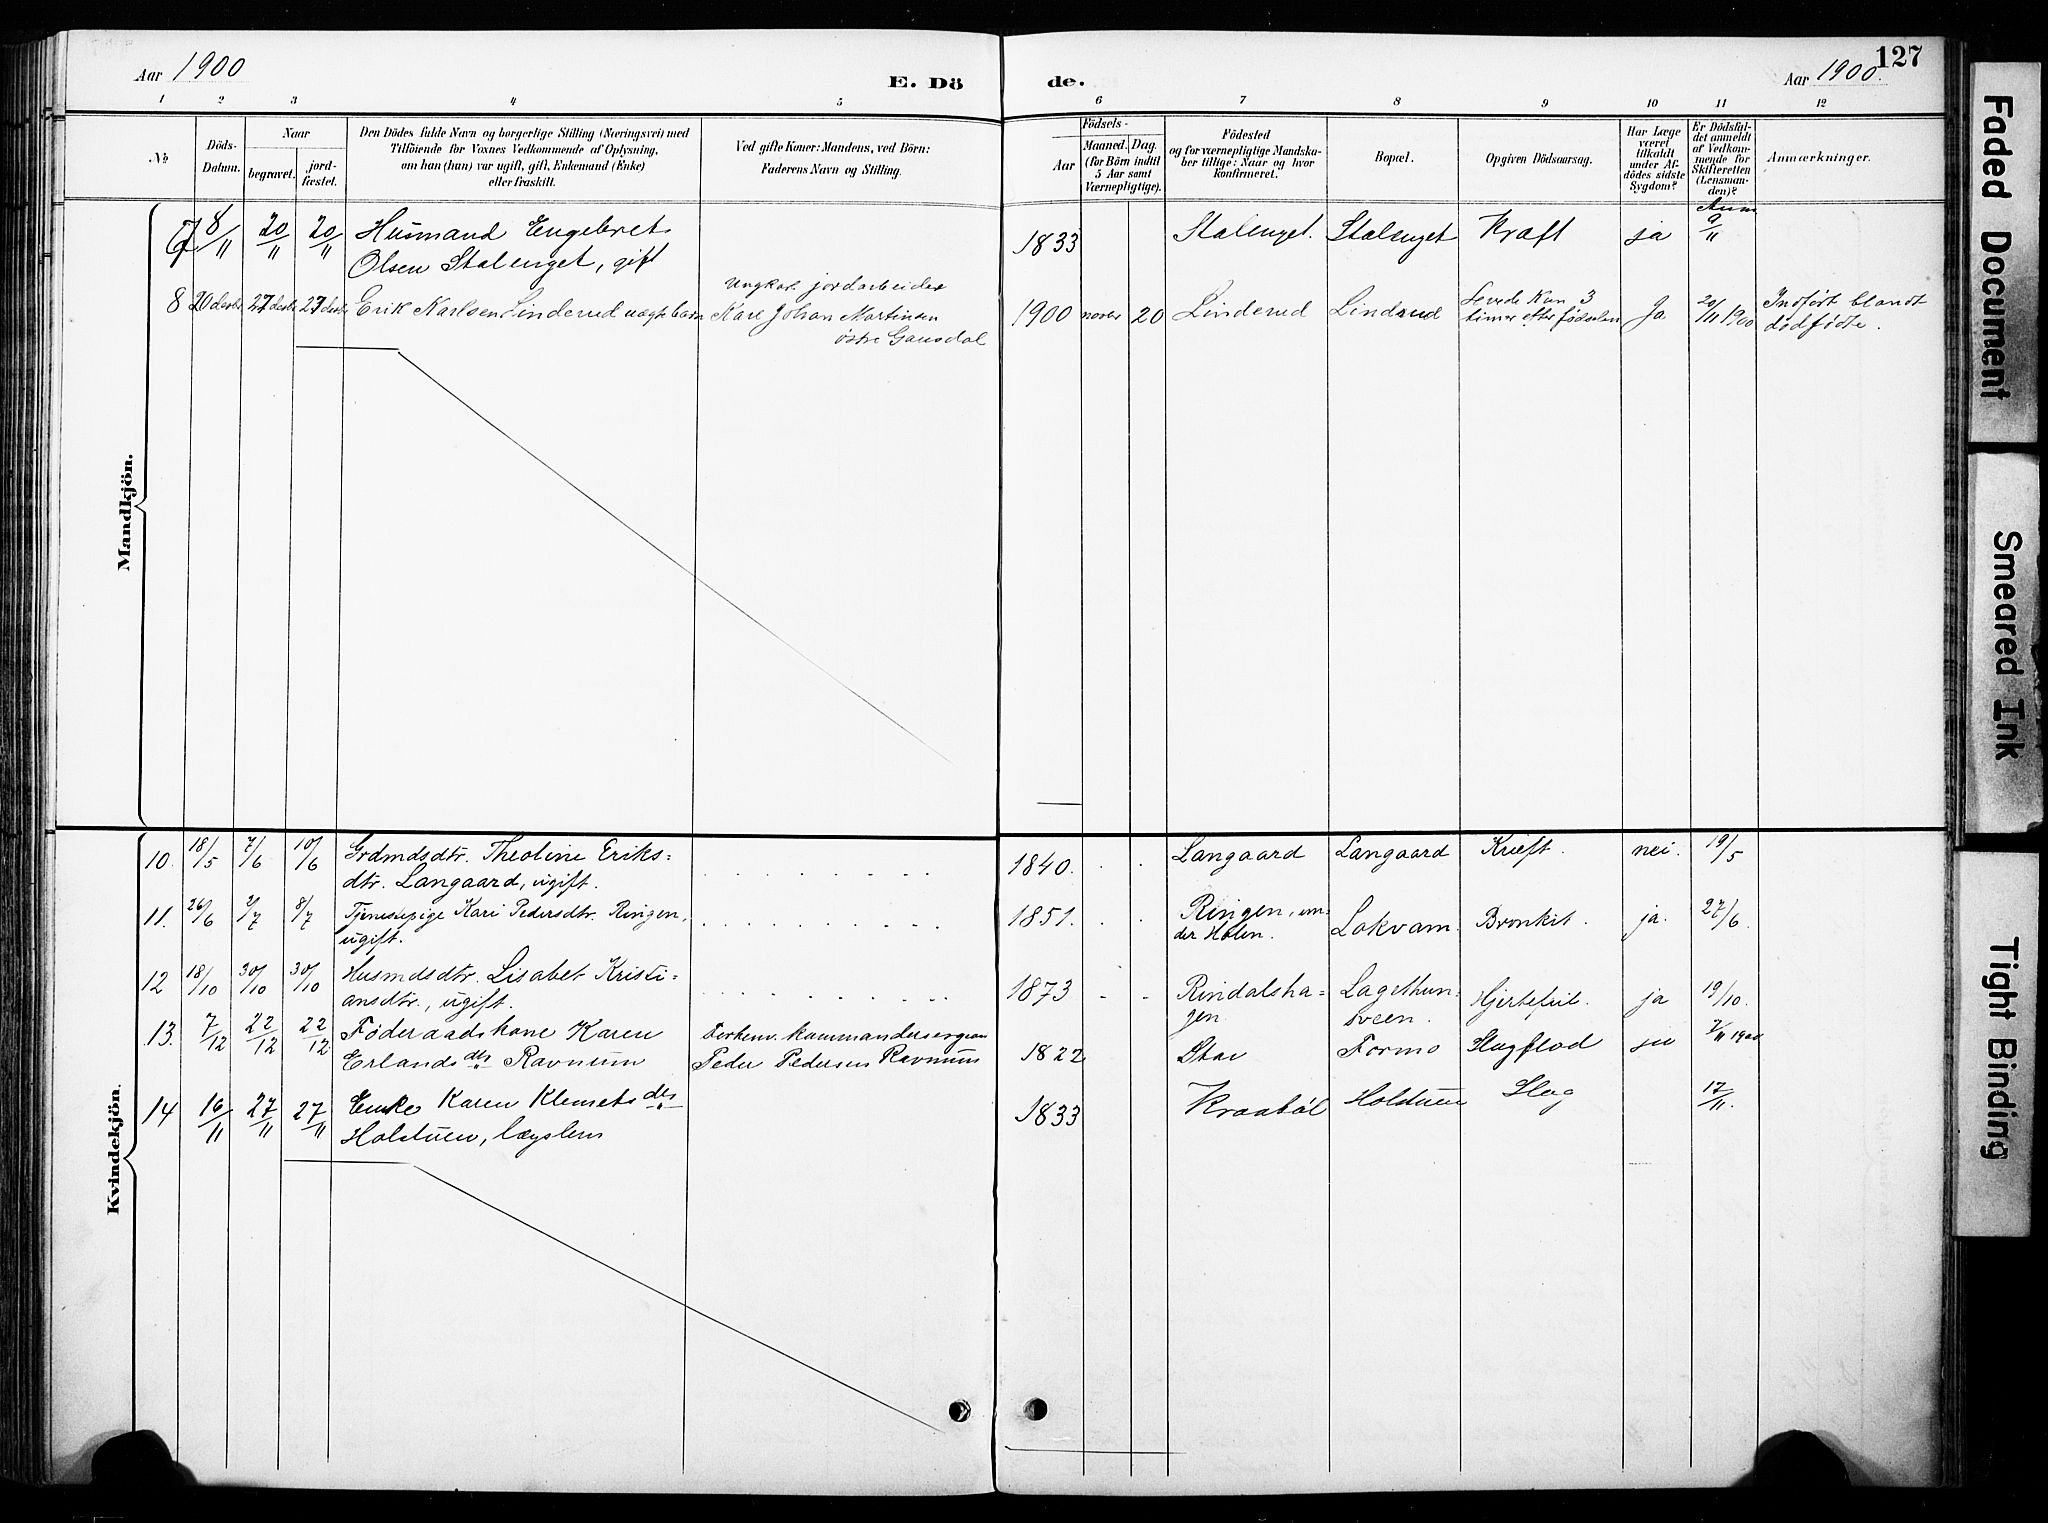 Aar 1900
E. Dö
de.
Aar 1900.
127
1 2 3 4 5 6 7 8 9 10 11 12
№
Döds-
Datum.
Naar
begravet.
jord-
fæstet.
Den Dödes fulde Navn og borgerlige Stilling (Næringsvei) med
Tilföiende for Voxnes Vedkommende af Oplysning,
om han (hun) var ugift, gift, Enkemand (Enke)
eller fraskilt.
Ved gifte Koner: Mandens, ved Börn:
Faderens Navn og Stilling.
Födsels-
Aar
Maaned. Dag.
(for Börn indtil
5 Aar samt
Værnepligtige).
Födested
og for værnepligtige Mandska-
ber tillige: Naar og hvor
konfirmeret.
Bopæl.
Opgiven Dödsaarsag.
Har Læge
været
tilkaldt
under Af-
dödes sidste
Sygdom?
Er Dödsfal-
det anmeldt
af Vedkom-
mende for
Skifteretten
(Lensman-
den)?
Anmærkninger.
Mandkjön.
7 8/11 20/11 20/11 Husmand Engebret 1833 Stalenget. Stalenget Kraft ja Anm 9/11
Olsen Stalenget, gift
Ungkar jordarbeider
8 20 decbr 27 decbr 27 decbr Erik Karlsen Linderud uægte barn Karl Johan Martinsen 1900 novbr 20 Linderud Linderud Levede kun 3 Ja 20/11 1900 Indført blandt
østre Gausdal timer efter fødselen dødfødte.
Kvindekjön.
10. 18/5 7/6 10/6 Grdmdsdtr. Theoline Eriks= 1840. Langaard Langaard Kræft. nei. 19/5
dtr. Langaard, ugift.
11. 26/6 2/7 8/7 Tjenestepige Kari Pedersdtr. Ringen, 1851. Ringen, un- Lokvam. Bronkit. ja. 27/6
ugift. der Holen.
12 18/10 30/10 30/10 Husmdsdtr. Lisabet Kristi= 1873 Rindalsha- Hjertefeil. ja 19/10.
ansdtr., ugift. gen. sveen.
13. 7/12 22/12 22/12 Føderaadskone Karen 1822 Formo Slagflod
Erlandsdtr Ravnum Peder Pedersen Ravnum
14 16/11 27/11 27/11 Enke Karen Klemetsdtr 1833 Kraabøl Holstuen Slag 17/11.
Holstuen, lægslem
Faded Document
Smeared Ink
Tight Binding